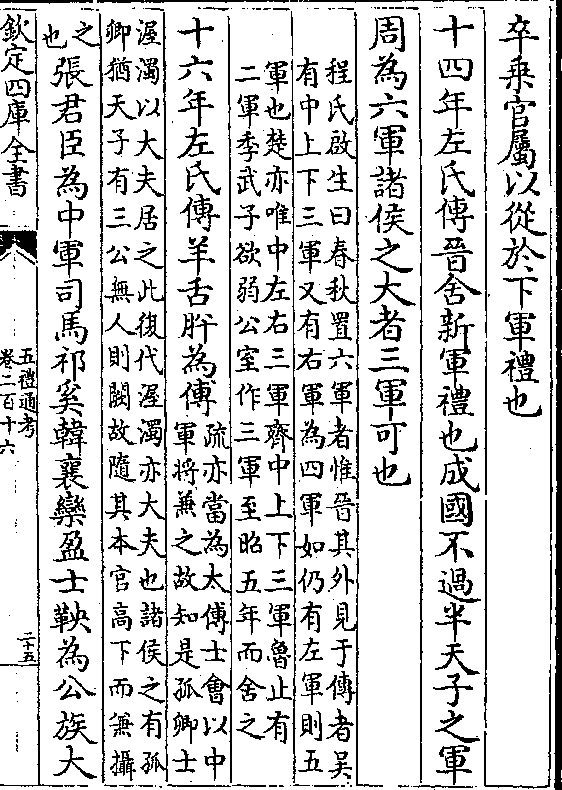 卒乗官屬以從於下軍禮也
十四年左氏傳晉舍新軍禮也成國不過半天子之軍
周為六軍諸侯之大者三軍可也
程氏啟生曰春秋置六軍者惟晉其外見于傳者吳
有中上下三軍又有右軍為四軍如仍有左軍則五
軍也楚亦唯中左右三軍齊中上下三軍魯止有
二軍季武子欲弱公室作三軍至昭五年而舍之
十六年左氏傳羊舌肸為傅
疏亦當為太傅士㑹以中
軍将兼之故知是孤卿士
渥濁以大夫居之此復代渥濁亦大夫也諸侯之有孤
卿猶天子有三公無人則闕故隨其本官高下而兼攝
之
也
張君臣為中軍司馬祁奚韓襄欒盈士鞅為公族大
欽定四庫全書
五禮通考
卷二百十六
二十五